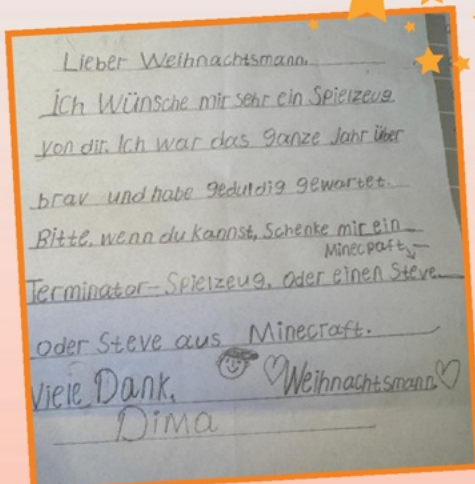 Lieber Weihnachtsmann,
ich Wünsche mir sehr ein Spielzeug
von dir. Ich war das ganze Jahr über
brav und habe geduldig gewartet.
Bitte, wenn du kannst, Schenke mir ein
Minecpaft
Terminator-Spielzeug, oder einen Steve
oder Steve aus Minecraft.
Viele Dank, ♡Weihnachtsmann♡
Dima